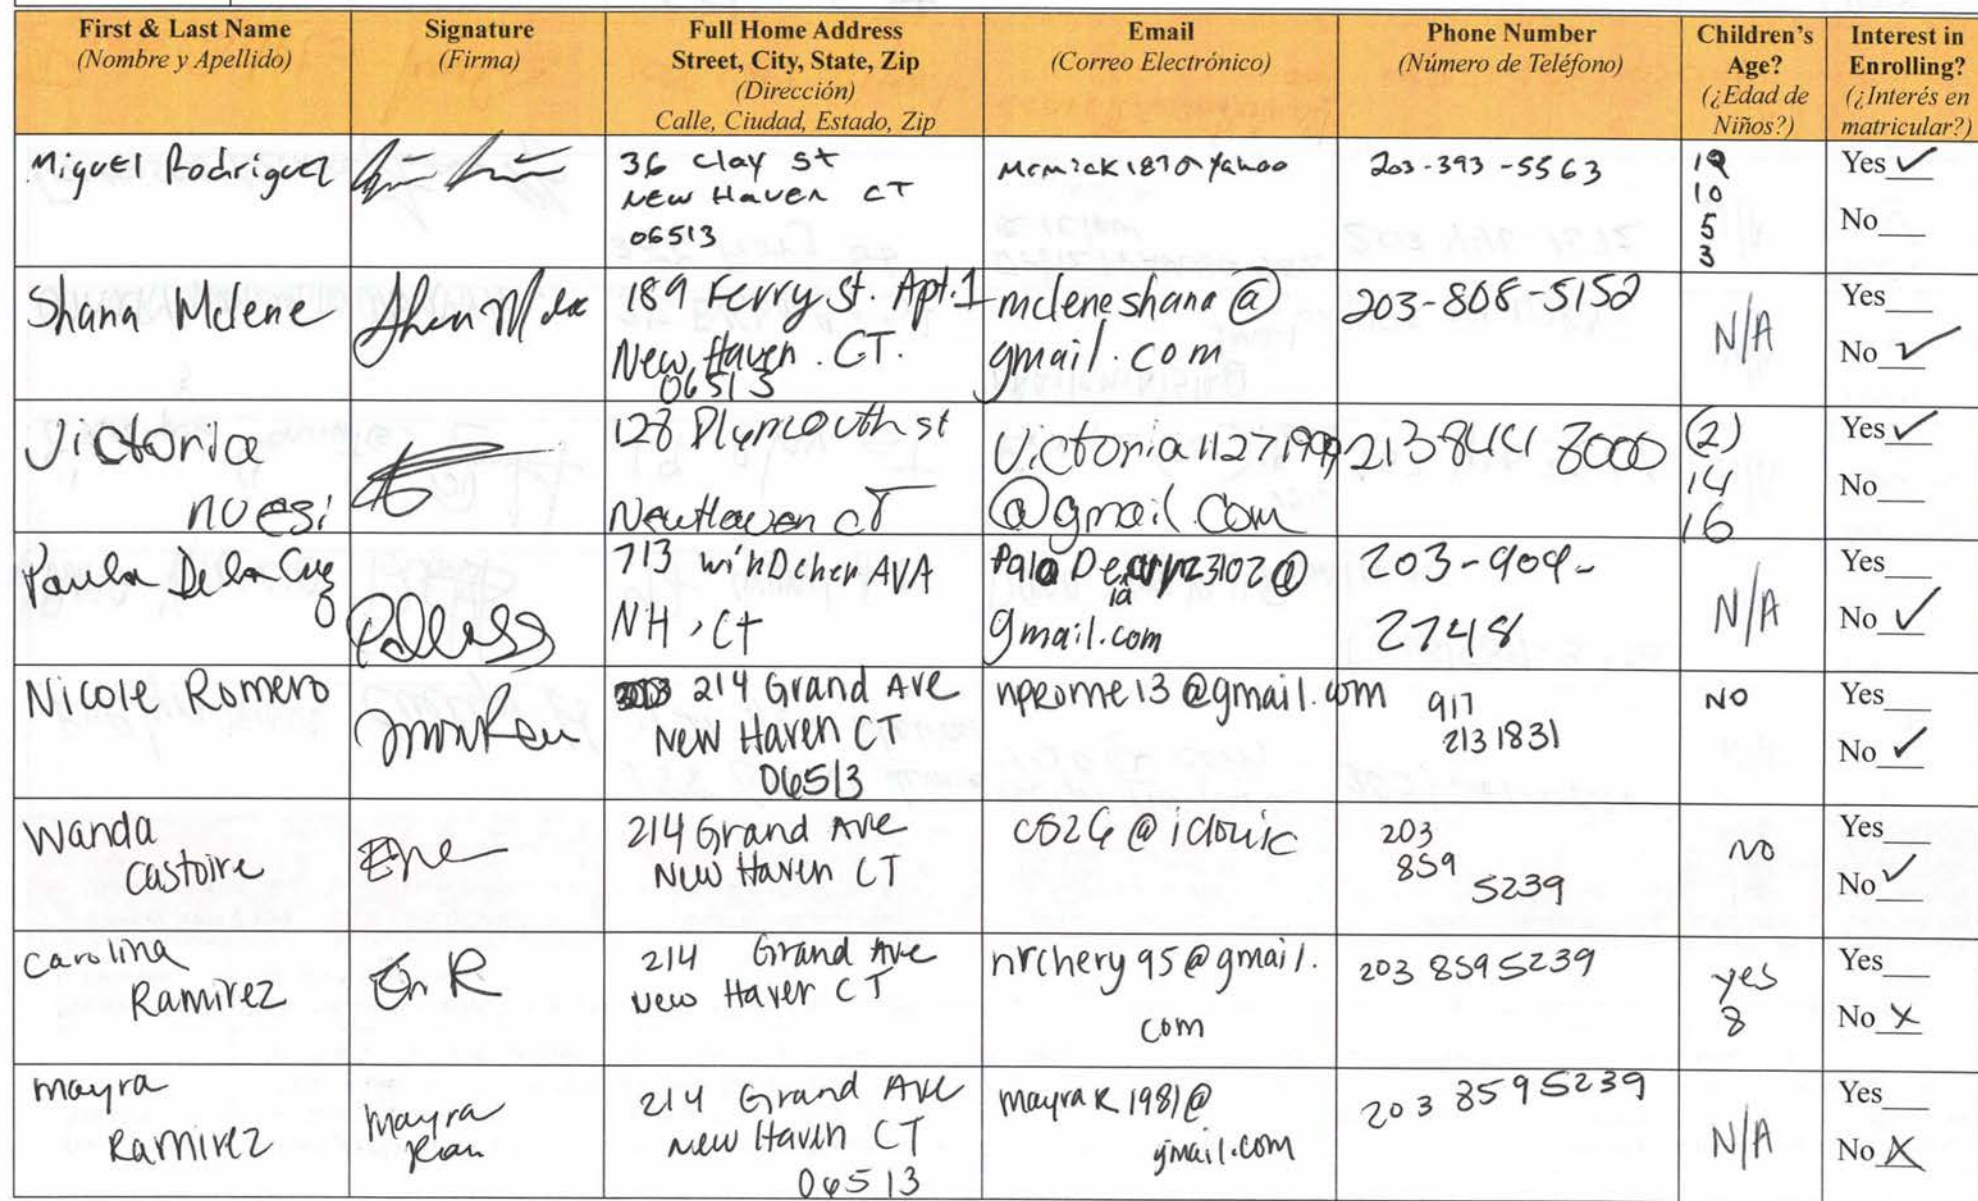 First & Last Name
(Nombre y Apellido)
Signature
(Firma)
Full Home Address
Street, City, State, Zip
(Dirección)
Calle, Ciudad, Estado, Zip
Email
(Correo Electrónico)
Phone Number
(Número de Teléfono)
Children's
Age?
(¿Edad de
Niños?)
Interest in
Enrolling?
(¿Interés en
matricular?)
Miguel Rodriguez
36 Clay st
New Haven CT
06513
203-393-5563
10
5
3
Yes ✓
No
Shana Mclene
189 Ferry St. Apt.1
New Haven . CT.
06513
mcleneshana@
gmail.com
203-808-5152
N/A
Yes
No ✓
Victoria
nuesi
128 Plymouth st
New Haven CT
@gmail.com
213 844 8000
(2)
14
16
Yes ✓
No
Paula De la Cruz
713 AVA
NH, Ct
gmail.com
203-909-
2748
N/A
Yes
No ✓
Nicole Romero
214 Grand Ave
New Haven CT
06513
nprome13@gmail.com
917
2131831
NO
Yes
No ✓
Wanda
Castoire
214 Grand Ave
New Haven CT
203
859
5239
no
Yes
No ✓
Carolina
Ramirez
214 Grand Ave
New Haven CT
nrchery95@gmail.
com
203 8595239
yes
8
Yes
No X
mayra
Ramirez
Mayra
214 Grand Ave
New Haven CT
06513
mayraR1981@
gmail.com
203 8595239
N/A
Yes
No X